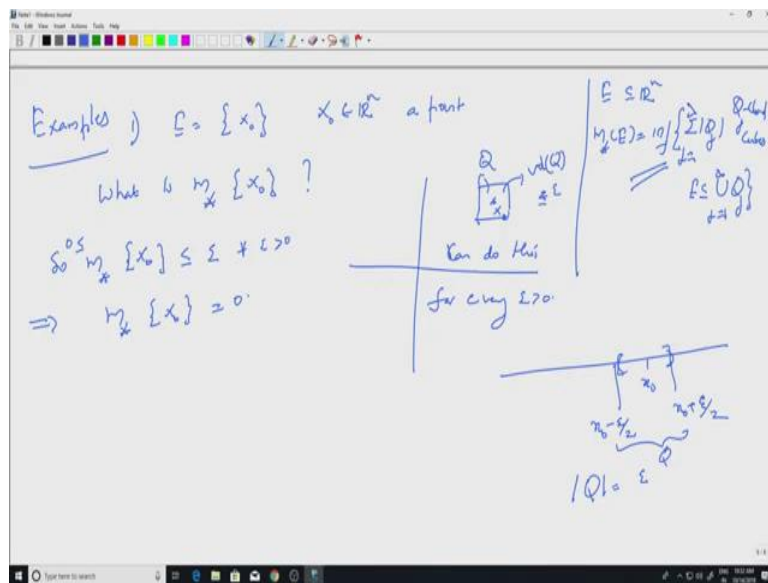 Note1 - Windows Journal
File Edit View Insert Actions Tools Help
Examples 1) E = {x₀} x₀ ∈ ℝⁿ a point
What is m_* {x₀} ?
So 0 ≤ m_* {x₀} ≤ ε ∀ ε > 0
⇒ m_* {x₀} = 0.
Q vol(Q)
x₀ ≤ ε
Can do this
for every ε > 0.
E ⊆ ℝⁿ
m_*(E) = inf { Σ_{j=1}^∞ |Q_j| Q_j closed
cubes
E ⊆ ∪_{j=1}^∞ Q_j }
x₀
x₀ - ε/2 x₀ + ε/2
Q
|Q| = ε
Type here to search